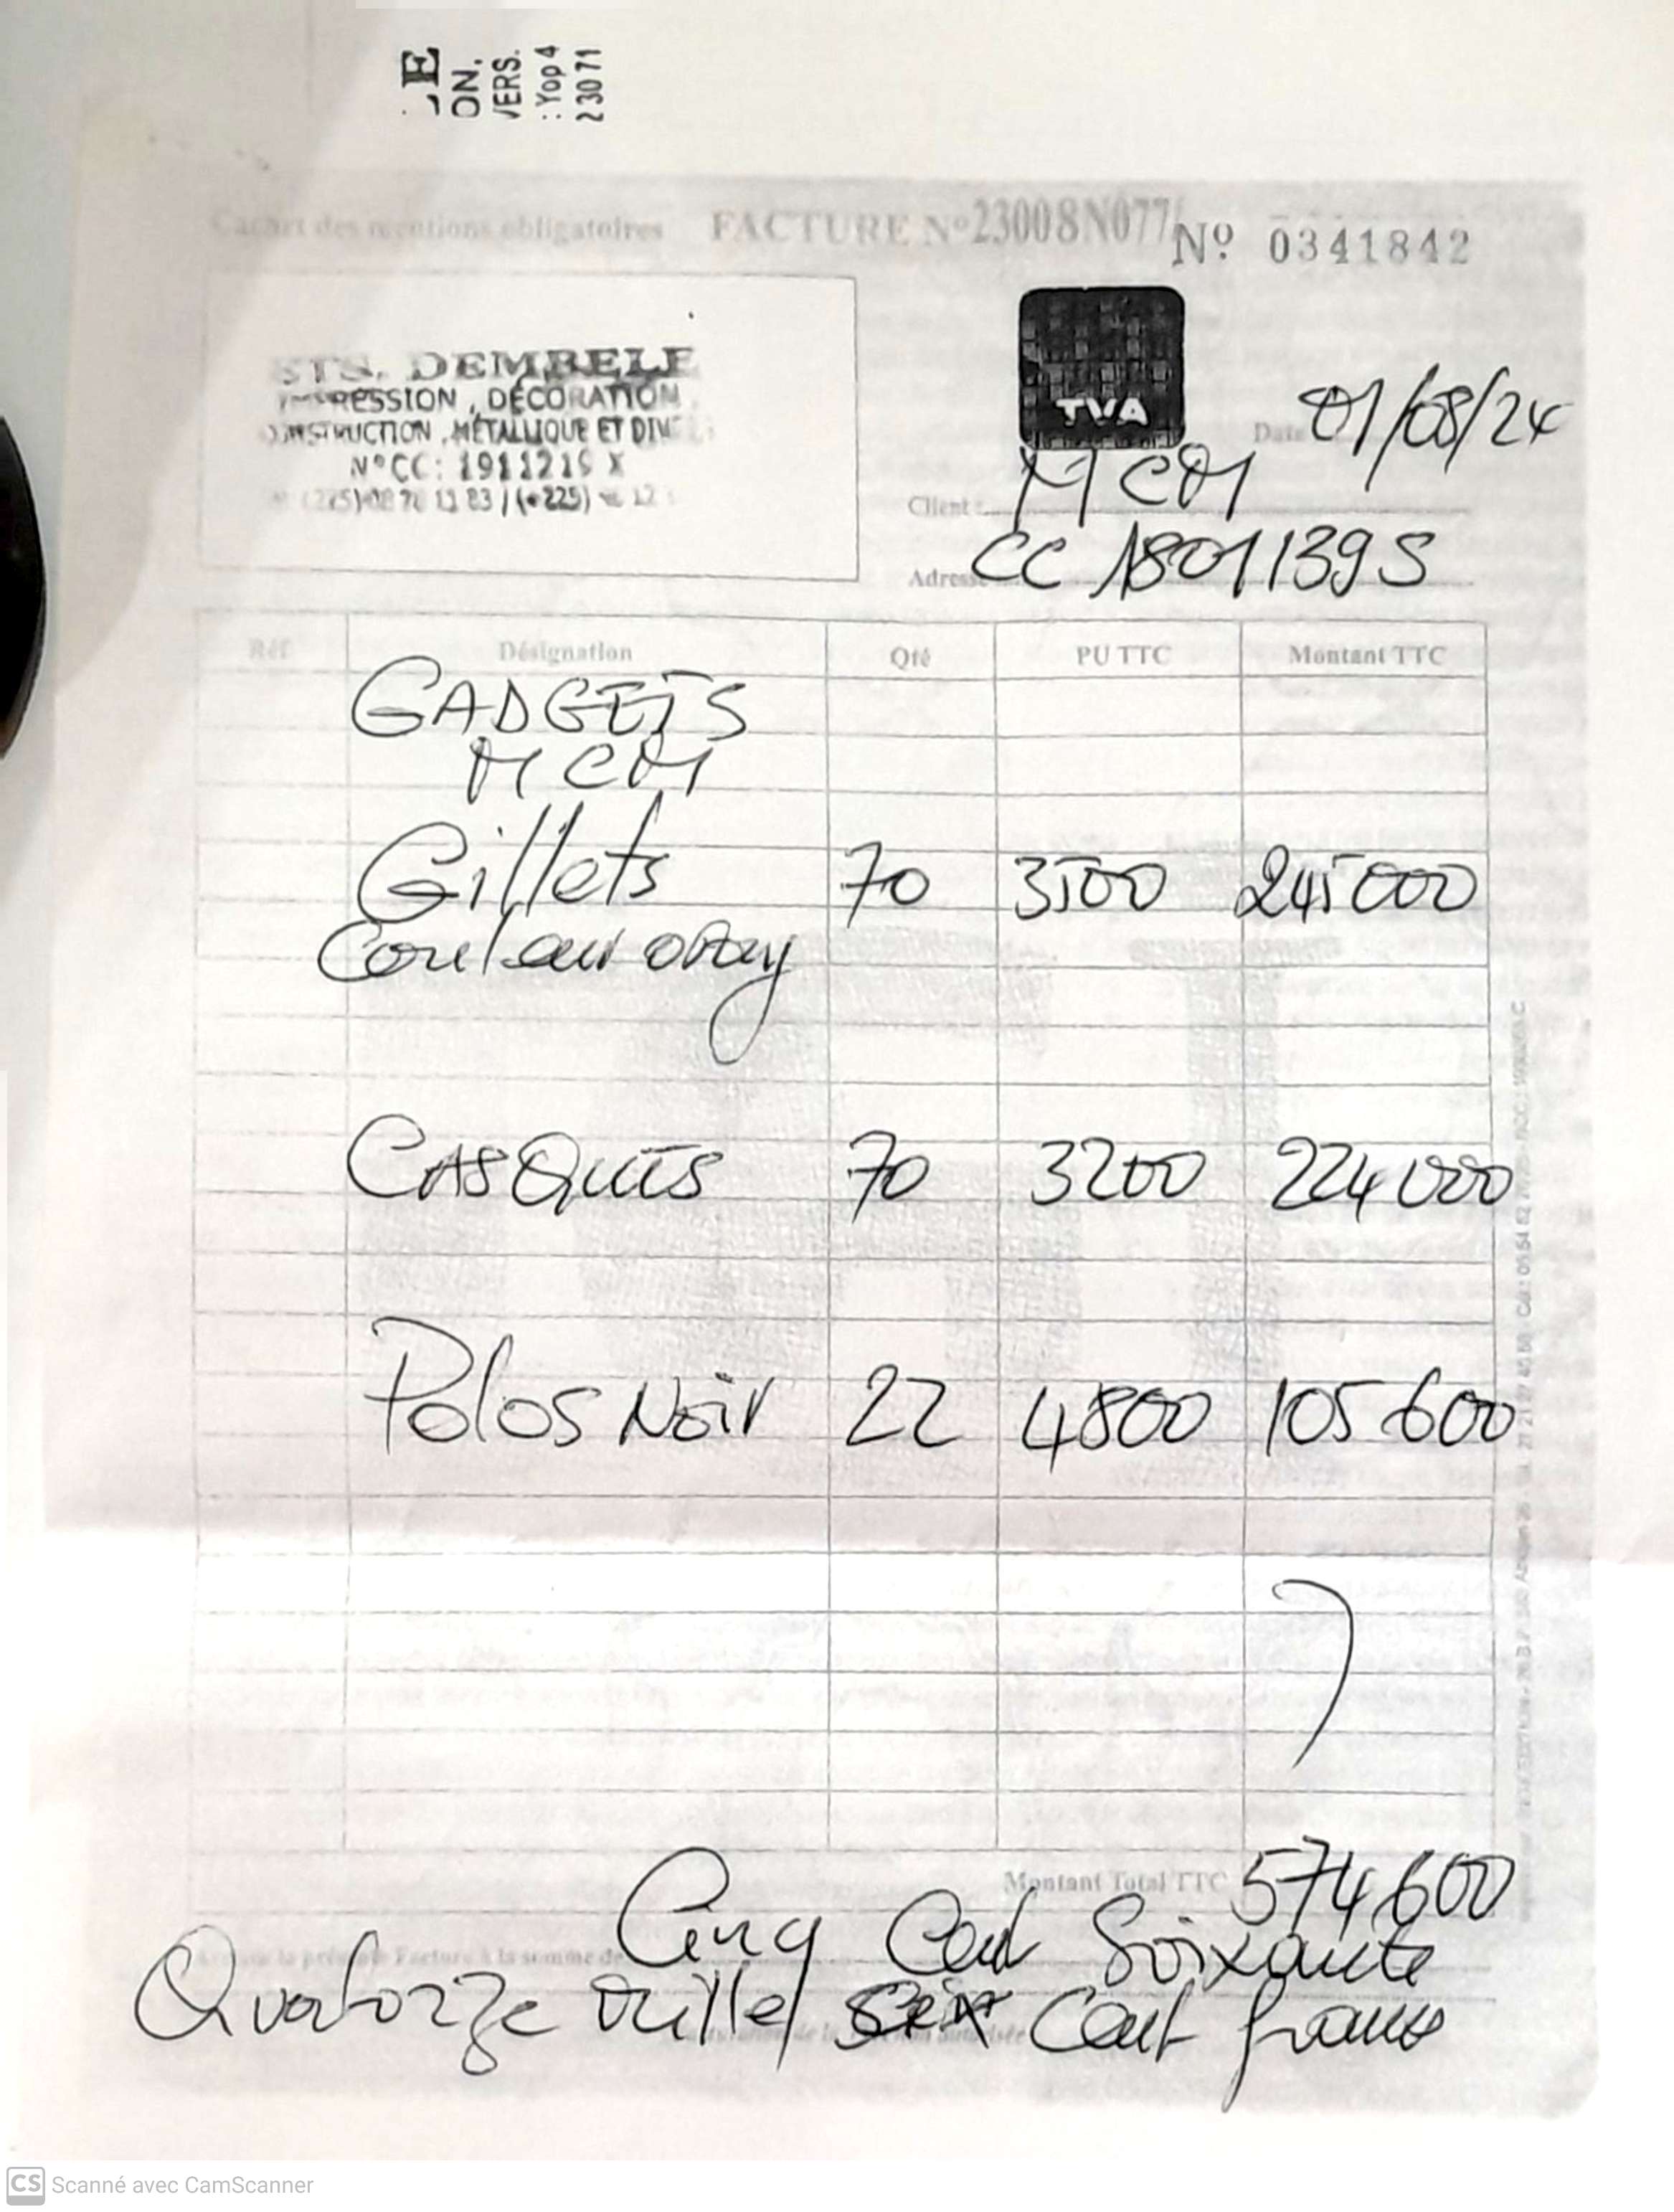 E
ON,
VERS.
: Yop 4
23071
Cachet des mentions obligatoires FACTURE N° 23008N077 N° 0341842
ETS. DEMBELE
IMPRESSION , DÉCORATION
CONSTRUCTION , MÉTALLIQUE ET DIV
N°CC: 1911215 X
TVA
Date 01/08/24
Client : MCM
Adresse CC 1801139 S
Réf Désignation Qté PU TTC Montant TTC
GADGETS
MCM
Gillets 70 3500 245000
Couleur oray
CASQUES 70 3200 224000
Polos Noir 22 4800 105600
Montant Total TTC 574600
Arrêtée la présente Facture à la somme de Cinq Cent Soixante
Quatorze mille six Cent francs
CS Scanné avec CamScanner